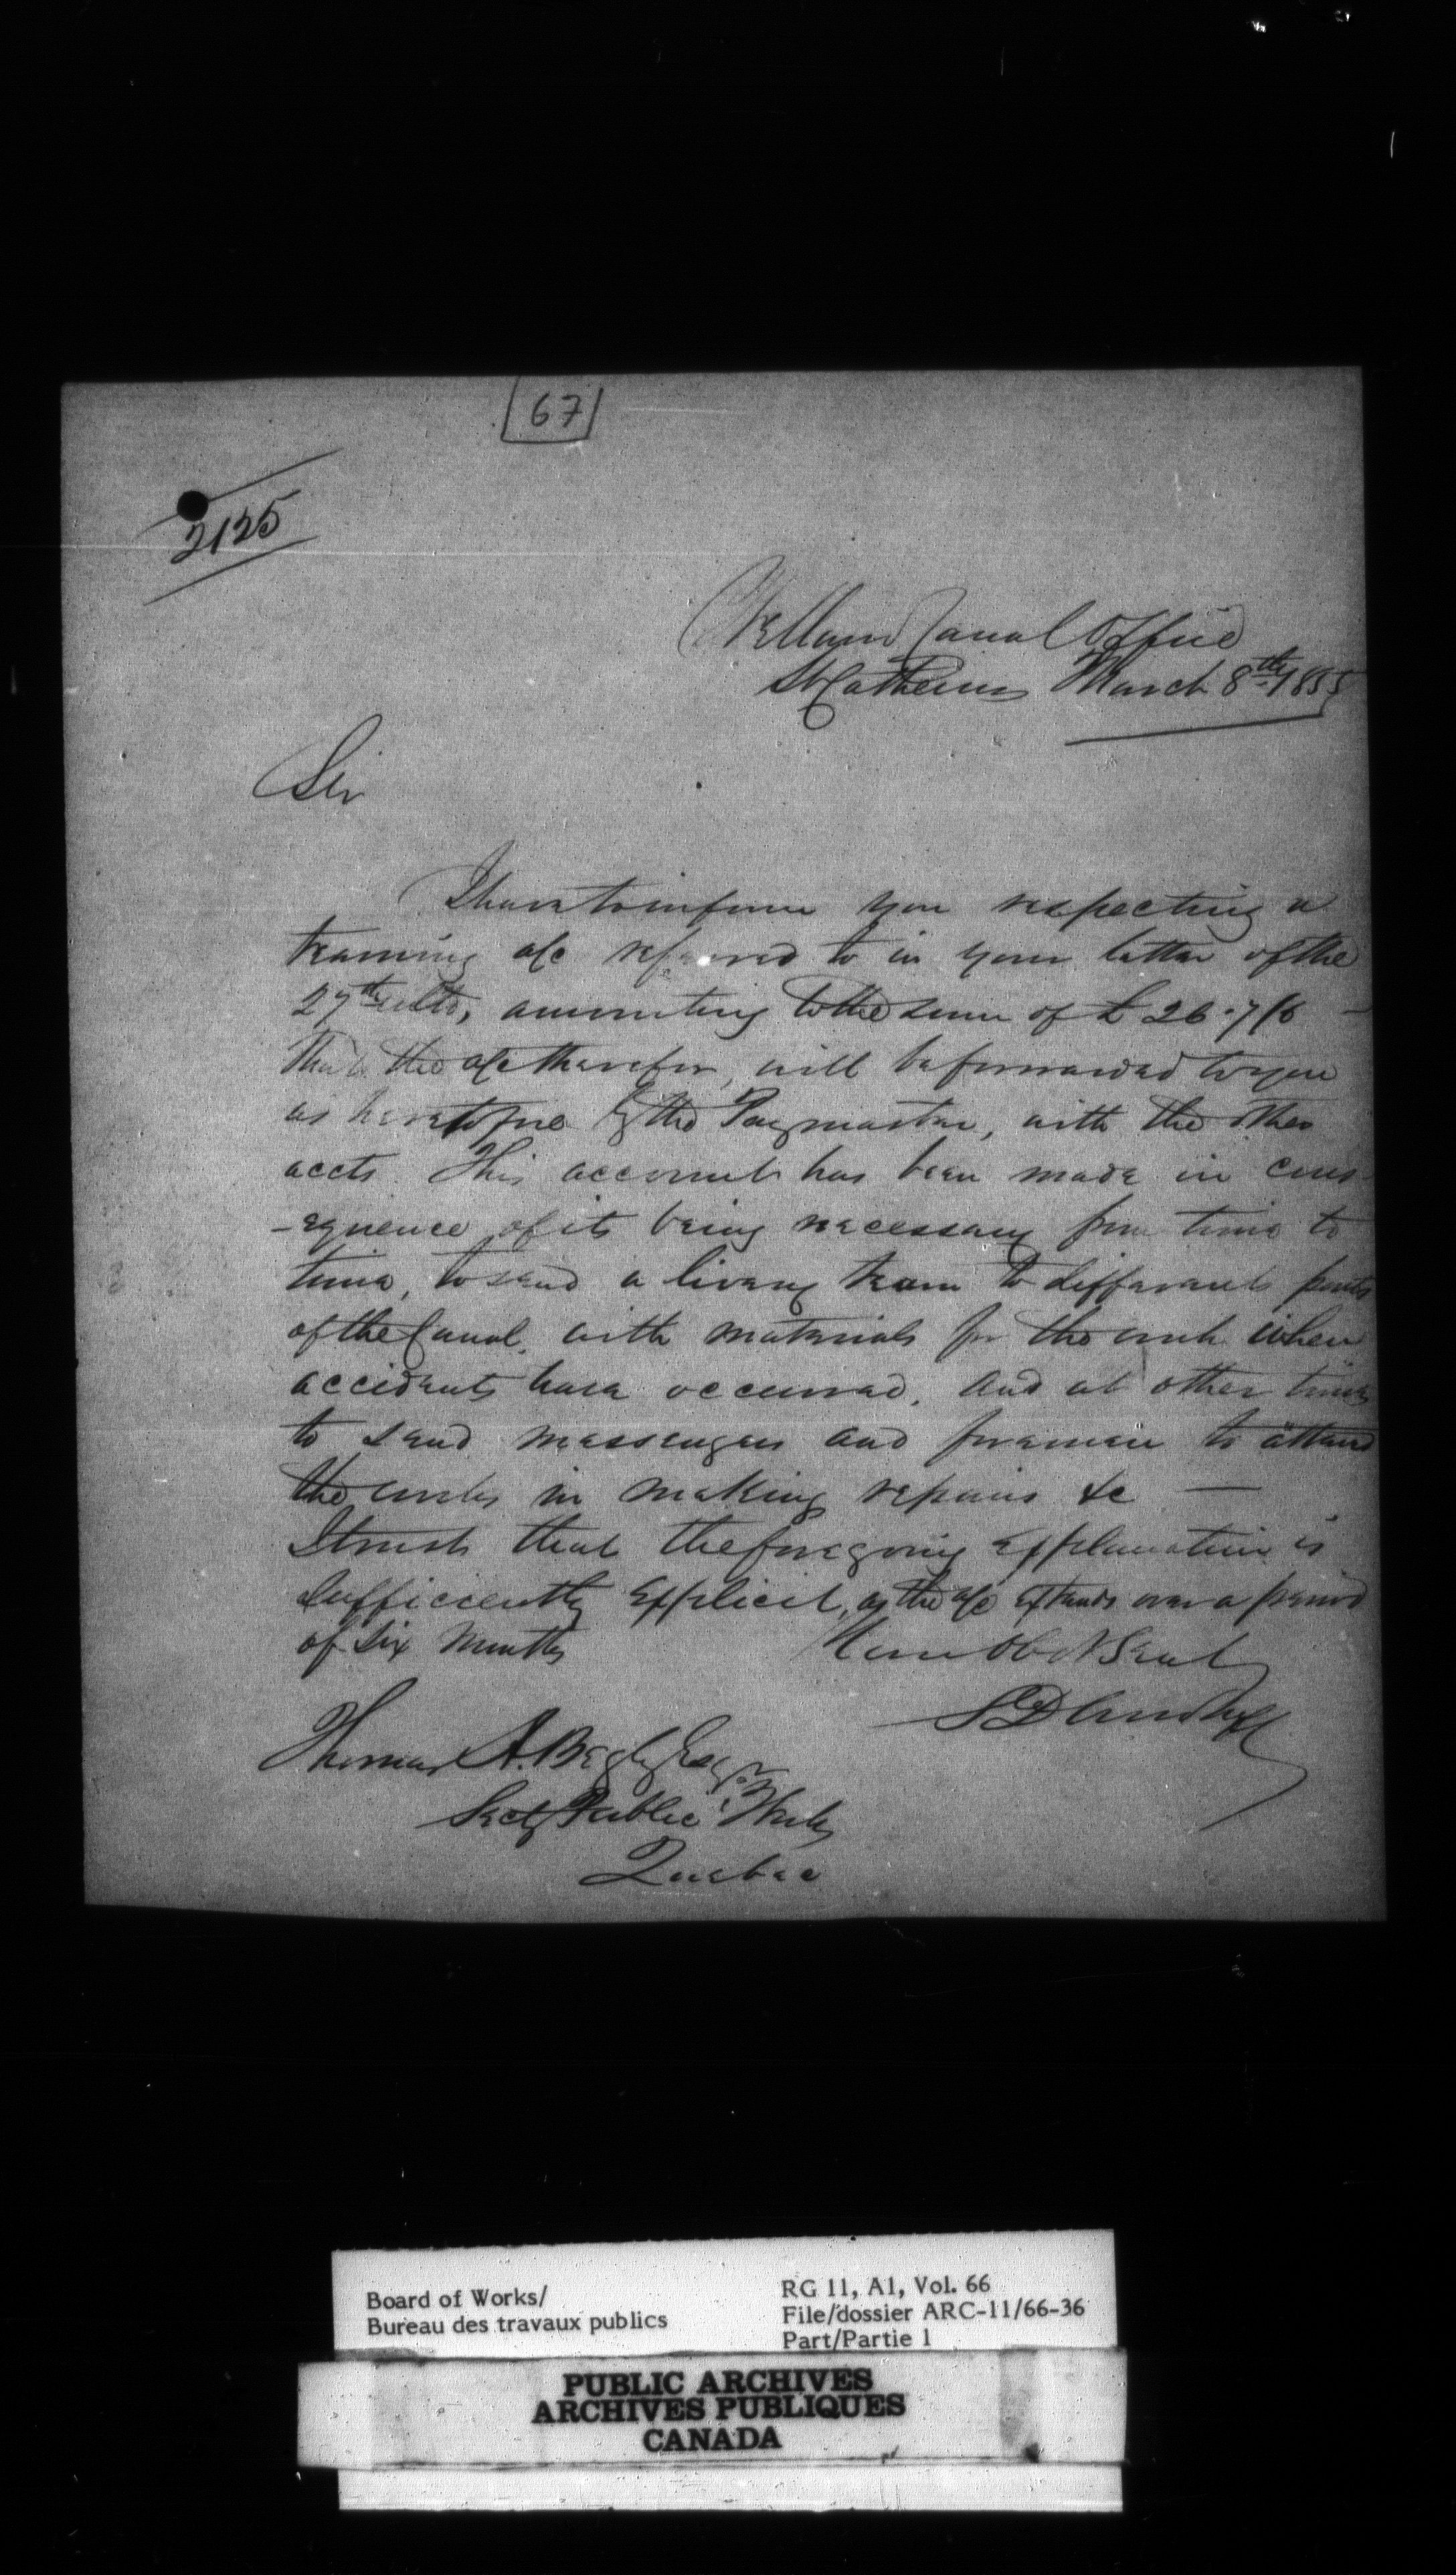 67
2125
Welland Canal Office
St Catherines March 8th 1855
Sir
I have to inform you respecting a
teaming a/c referred to in your letter of the
27th ulto, amounting to the sum of £ 26.7/6 —
that the a/c therefor, will be forwarded to you
as heretofore by the Paymaster, with the other
accts. This account has been made in cons
-equence of its being necessary from time to
time, to send a livery team to different points
of the Canal, with materials for the work when
accidents have occurred, and at other times
to send messengers and foremen to attend
the works in making repairs &c —
I trust that the foregoing explanation is
sufficiently explicit, as the a/c extends over a period
of six months
Your Obdt Servt
S D Woodruff
Thomas A. Begly Esqr
Secty Public Works
Quebec
Board of Works/
Bureau des travaux publics
RG 11, A1, Vol. 66
File/dossier ARC-11/66-36
Part/Partie 1
PUBLIC ARCHIVES
ARCHIVES PUBLIQUES
CANADA